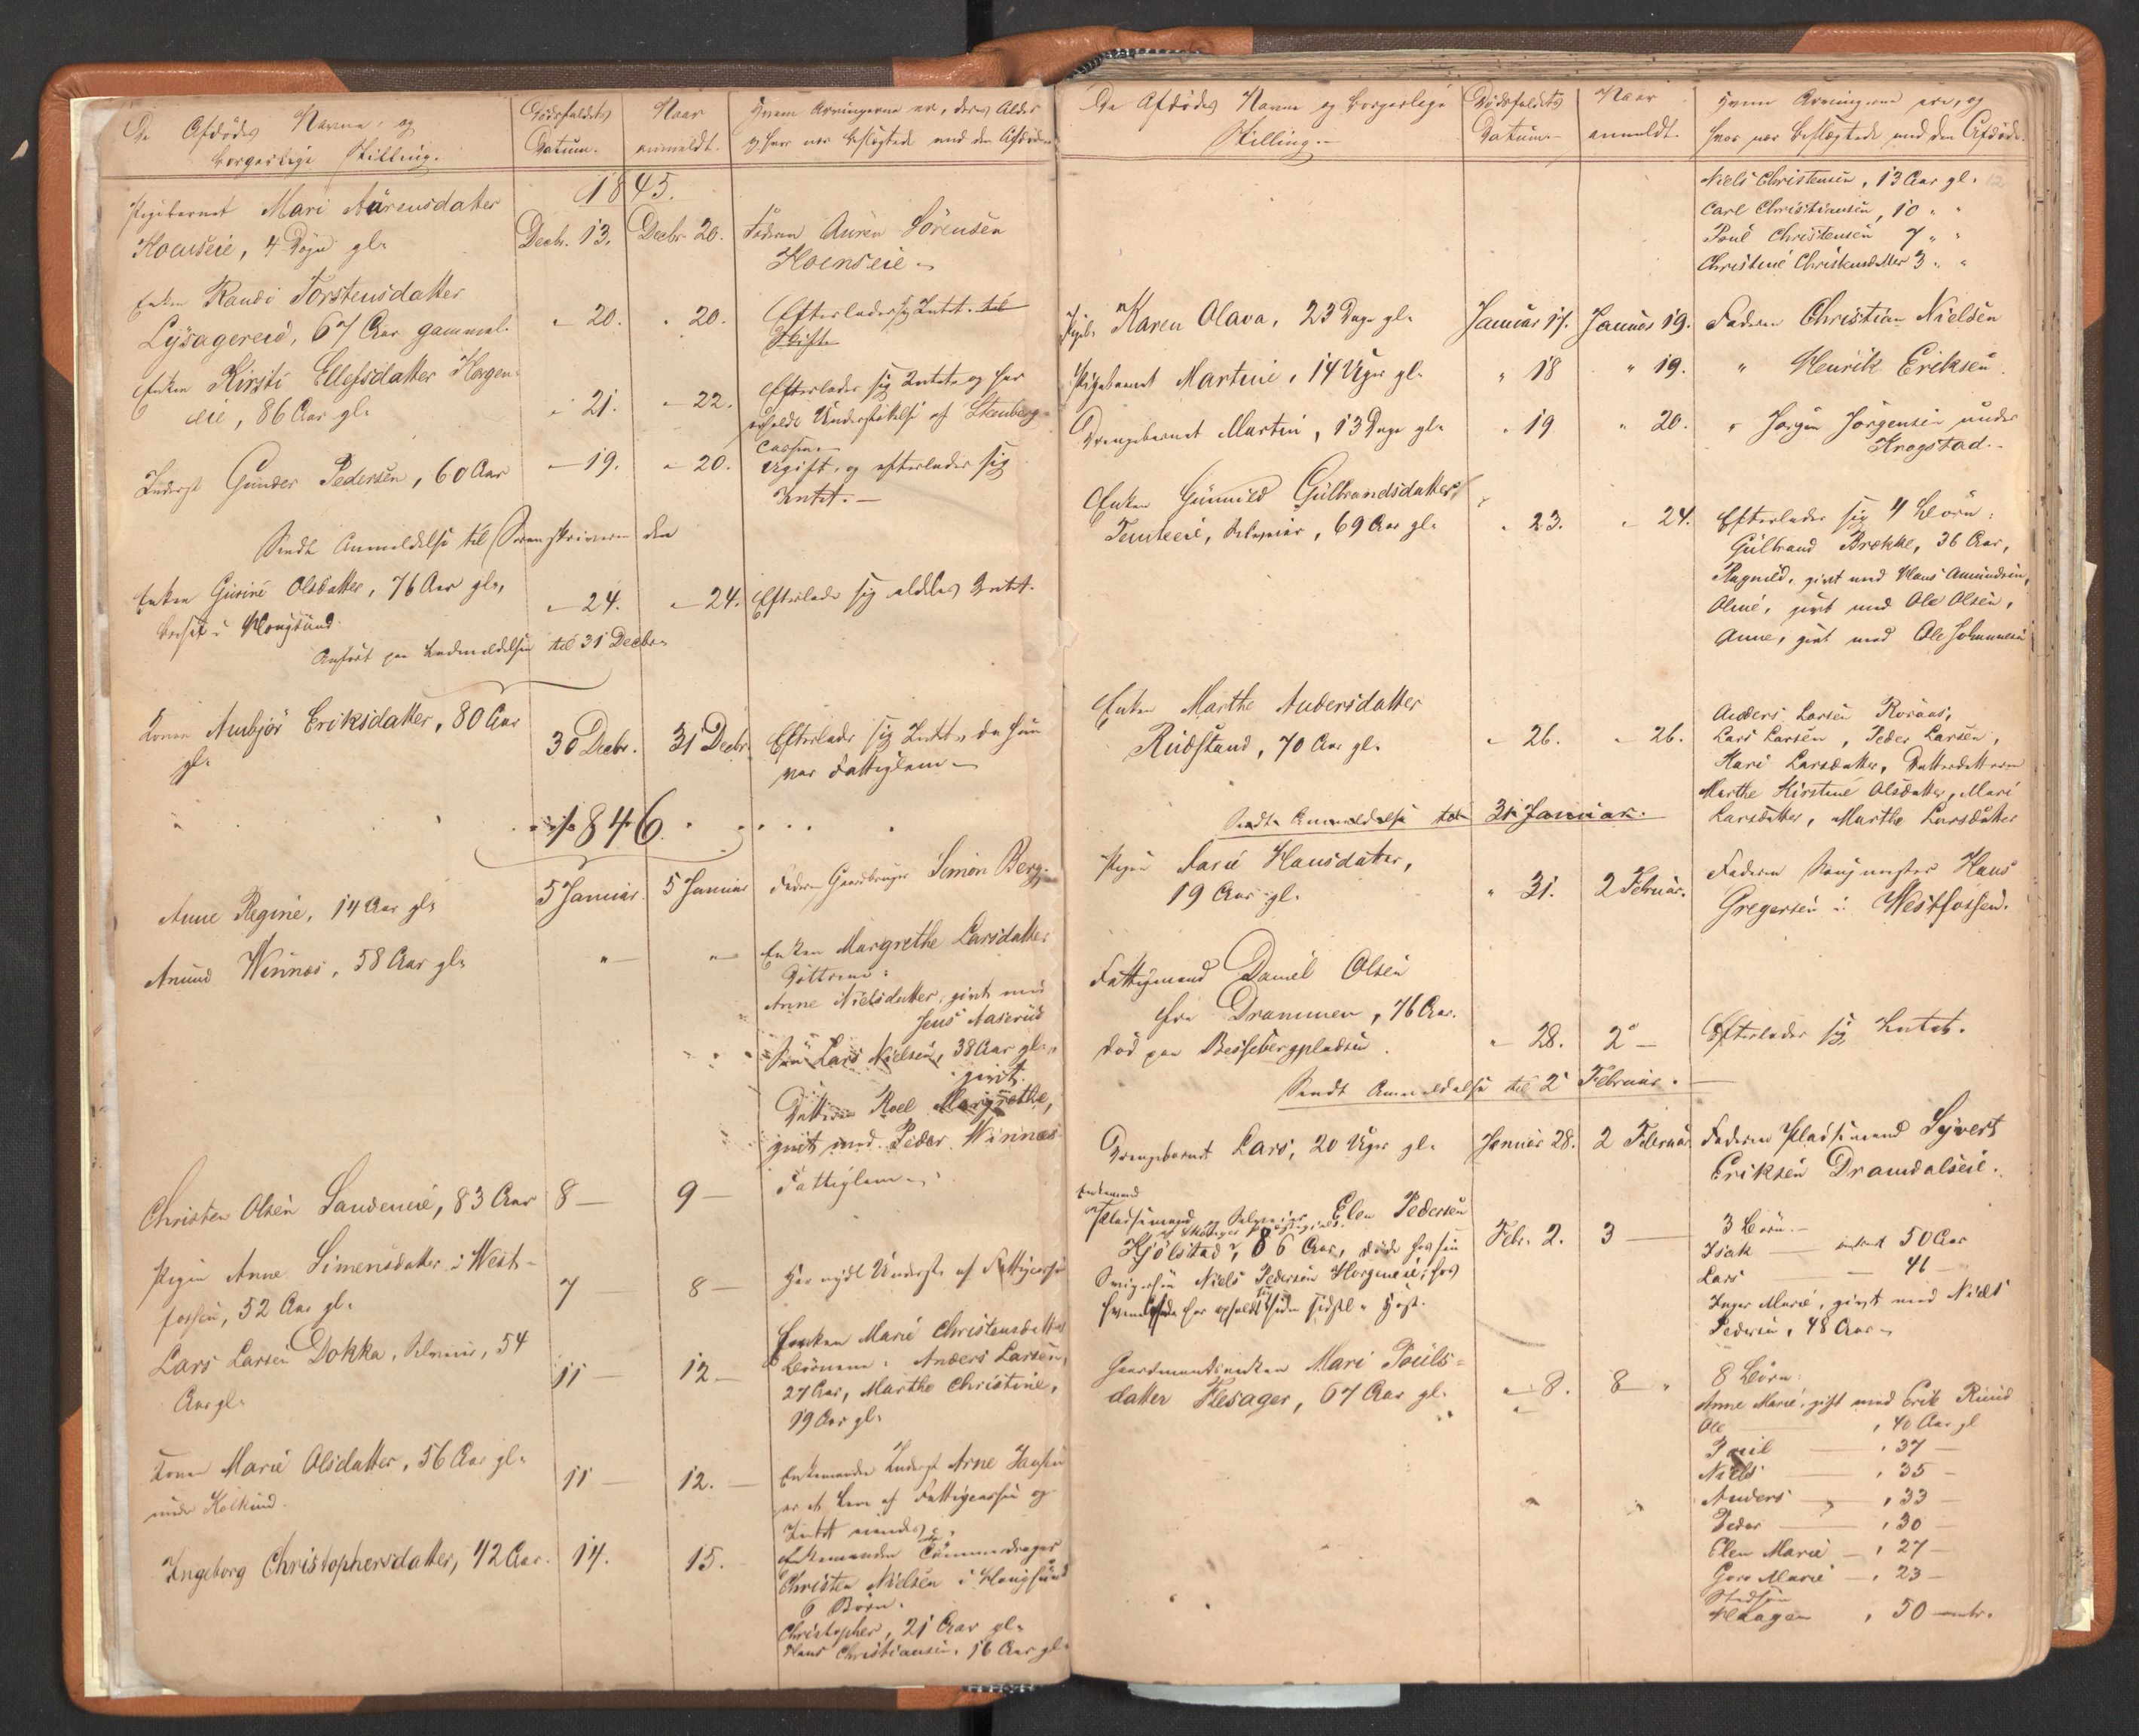 De Afdødes Navne og
borgerlige Stilling.
Dødsfaldets
Datum.
Naar
anmeldt.
Hvem Arvingerne er, deres Alder
og hvor nær beslægtede med den Afdøde
1845.
Pigebarnet Mari Aurensdatter
4 Døgn gl.
Decbr. 13.
Decbr. 20.
Faderen Auren Sörensen
Hoenseie
Enken Randi Torstensdatter
Lysagereie, 67 Aar gammel.
" 20.
" 20.
Efterlader sig Intet. til
Skifte
Enken Kirsti Ellefsdatter Horgen
eie, 86 Aar gl.
" 21.
" 22.
Efterlader sig Intet og har
Understøttelse af Stenberg
Cassen
Inderst Gunder Pedersen, 60 Aar
" 19.
" 20.
Ugift, og efterlader sig
Intet.
Sendt Anmeldelse til Sorenskriveren den
Enken Gurine Olsdatter, 76 Aar gl.
i Hougsund.
" 24.
" 24.
Efterlader sig aldeles Intet.
Anført paa Indmeldelsen til 31 Decbr.
Konen Anbjør Eriksdatter, 80 Aar
gl.
30 Decbr.
31 Decbr.
Efterlader sig Intet, da hun
var Fattiglem
1846.
Anne Regine, 14 Aar gl.
5 Januar.
5 Januar
Faderen Gaardbruger Simon Berg.
Amund Winnæs, 58 Aar gl.
"
"
Enken Margrethe Larsdatter
Døttrene:
Anne Nielsdatter, givt med
Jens Aaserud
Søn Lars Nielsen, 38 Aar gl.
givt.
Datteren Roel Margrethe,
givt med Peder Winnæs
Christen Olsen Sandeneie, 83 Aar
8
9
Fattiglem
Pigen Anne Simensdatter i West-
fossen, 52 Aar gl.
7
8
Har nydt Underst. af Fattigcassen
Lars Larsen Dokka, Selveier, 54
Aar gl.
11
12.
Enken Marie Christensdatter
Børnene: Anders Larsen,
27 Aar, Marthe Christine,
19 Aar gl.
Konen Marie Olsdatter, 56 Aar gl.
under Kolkind.
11
12.
Enkemanden Inderst Arne Hansen
er et Lem af Fattigcassen og
Intet eiendes.
Ingeborg Christophersdatter, 42 Aar.
14.
15.
Enkemanden Tømmerdrager
Christen Nielsen i Hougsund
6 Børn.
Christopher, 21 Aar gl.
Hans Christiansen, 16 Aar gl.
De Afdødes Navne og borgerlige
Stilling.
Dødsfaldets
Datum.
Naar
anmeldt.
Hvem Arvingerne ere, og
hvor nær beslægtede med den Afdøde.
Niels Christensen, 13 Aar gl. 12
Carl Christiansen, 10 " "
Poul Christensen 7 " "
Christine Christensdatter 3 " "
Pigeb. Karen Olava, 23 Dage gl.
Januar 17.
Januar 19.
Faderen Christian Nielsen
Pigebarnet Martine, 14 Uger gl.
" 18
" 19.
" Henrik Eriksen.
Drengebarnet Martin, 13 Dage gl.
" 19
" 20.
" Jørgen Jørgensen under
Krogstad.
Enken Gunnild Gulbrandsdatter
Temteeie, Selveier, 69 Aar gl.
" 23.
" 24.
Efterlader sig 4 Børn:
Gulbrand Brekke, 36 Aar,
Ragnild, givt med Hans Amundsen,
Oline, givt med Ole Olsen,
Anne, givt med Ole Johannesen
Enken Marthe Andersdatter
Rudstand, 70 Aar gl.
" 26.
" 26.
Anders Larsen Roraas,
Lars Larsen, Peder Larsen,
Kari Larsdatter, Datterdøttrene
Marthe Kirstine Olsdatter, Mari
Larsdatter, Marthe Larsdatter
Sendt Anmeldelse til 31 Januar.
Pigen Karie Hansdatter,
19 Aar gl.
" 31.
2 Februar.
Faderen Hans
Gregersen i Westfossen.
Fattigmand Daniel Olsen
fra Drammen, 76 Aar.
død paa Bessebergpladsen.
" 28.
2
Efterlader sig Intet.
Sendt Anmeldelse til 2 Februar.
Drengebarnet Lars, 20 Uger gl.
Januar 28.
2 Februar
Faderen Pladsemand Syvert
Eriksen Dramdalseie.
Enkemand
Pladsemand Elen Pedersen
Kjølstad, 86 Aar, døde hos sin
Svigersøn Niels Pedersen Horgeneie, hos
siden sidstl. Høst.
Febr. 2.
3
3 Børn.
Isak 50 Aar
Lars 46
Inger Marie, givt med Niels
Pedersen, 48 Aar
Gaardmandsenken Mari Pouls-
datter Flesager, 67 Aar gl.
" 8.
8 "
8 Børn.
Anne Marie, gift med Erik Ruud
Ole, 40 Aar gl
Poul, 37
Niels, 35
Anders, 33
Peder, 30
Elen Marie, 27
Goro Marie, 23
Stedsøn
Haagen, 50 omtr.